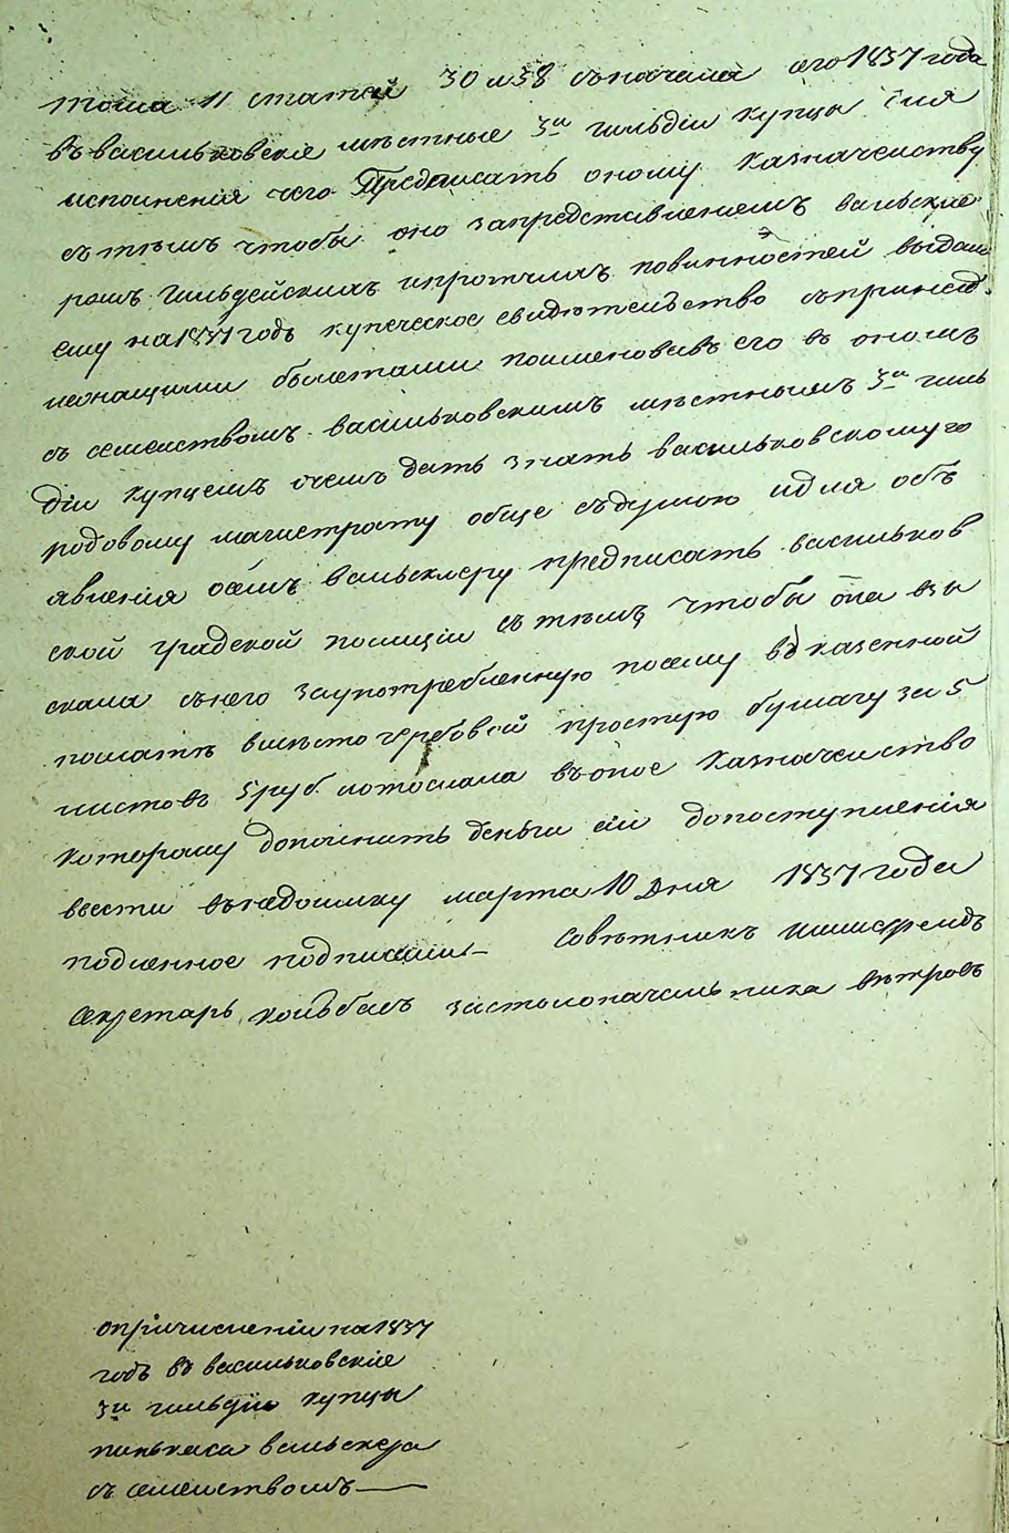 тома 11 статей 30 и 38 съ начала сего 1837 года
въ васильковскіе мѣстные 3й гильдіи купцы для
исполненія чего Предписать оному Казначейству
съ тѣмъ чтобы оно запредставленіемъ вальскле
ромъ гильдейскихъ ипротчихъ повинностей выдало
ему на 1837 годъ купеческое свидѣтельство съпринад
лежащими билетами поименовавъ его въ ономъ
съ семействомъ васильковскимъ мѣстнымъ 3й гиль
діи купцемъ очемъ дать знать васильковскому го
родовому магистрату обще съдумою идля объ
явленія осемъ вальсклеру предписать васильков
ской градской полиціи съ тѣмъ чтобы она взы
скала снего заупотребленную посему въ казенной
полатѣ вмѣсто гербовой простую бумагу за 5
листовъ 5 руб. иотослала въоное Казначейство
которому дополнить деньги сіи допоступленія
ввести въ недоимку марта 10 Дня 1837 года
подленное подписали— Совѣтникъ
Секретарь застолоначальника вѣтровъ
опричисленіи на 1837
годъ въ васильковскіе
3й гильдіи купцы
пинькаса вальсклера
съ семействомъ—